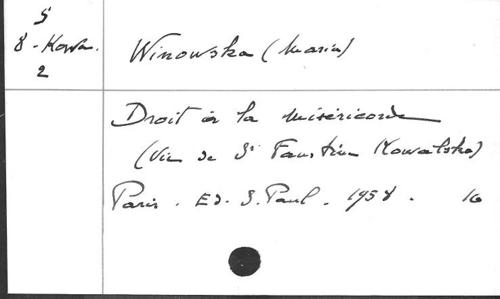 5
8 - Kowa.
2
Winowska (Maria)
Droit à la miséricorde
(Vie de Sr Faustine Kowalska)
Paris. Ed. S. Paul. 1958. 16